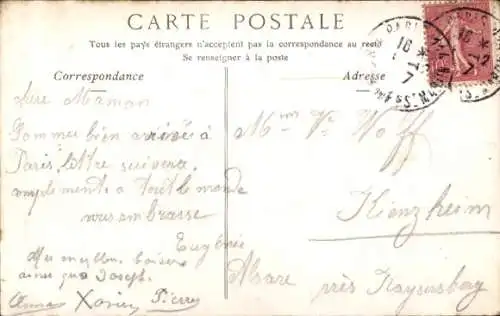 CARTE POSTALE
Tous les pays étrangers n'acceptent pas la correspondance au recto
Se renseigner à la poste
Correspondance
Adresse
PARIS
16
7
PARIS
16
12
7
Chère Maman
Sommes bien arrivés à
Paris, lettre suivera
complements a tout le monde
vous embrasse
Eugénie
Mes meilleurs baisers
ainsi que Joseph.
Anna Xavier Pierre
Mme Ve Wolff
Kienzheim
Alsace près Kaysersberg